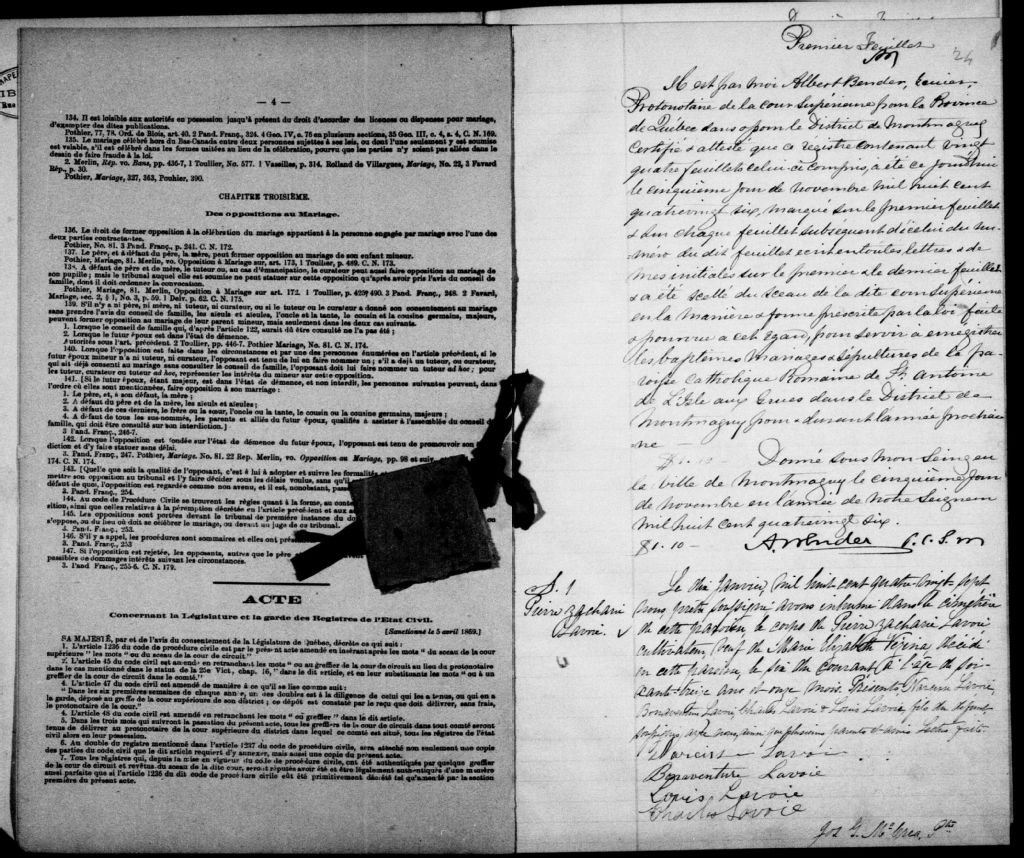 — 4 —
134. Il est loisible aux autorités en possession jusqu'à présent du droit d'accorder des licences ou dispenses pour mariage,
d'exempter des dites publications.
Pothier, 77, 78. Ord. de Blois, art. 40. 2 Pand. Franç., 324. 4 Geo. IV, c. 75 en plusieurs sections, 35 Geo. III, c. 4, s. 4, C. N. 169.
135. Le mariage célébré hors du Bas-Canada entre deux personnes sujettes à ses lois, ou dont l'une seulement y est soumise
est valable, s'il est célébré dans les formes usitées au lieu de la célébration, pourvu que les parties n'y soient pas allées dans le
dessein de faire fraude à la loi.
2 Merlin, Rép. vo. Bans, pp. 436-7, 1 Toullier, No. 577. 1 Vaseilles, p. 314. Rolland de Villargues, Mariage, No. 22, 3 Favard
Rép., p. 30.
Pothier, Mariage, 327, 363, Pouhier, 390.
CHAPITRE TROISIÈME.
Des oppositions au Mariage.
136. Le droit de former opposition à la célébration du mariage appartient à la personne engagée par mariage avec l'une des
deux parties contractantes.
Pothier, No. 81. 3 Pand. Franç., p. 241. C. N. 172.
137. Le père, et à défaut du père, la mère, peut former opposition au mariage de son enfant mineur.
Pothier, Mariage, 81. Merlin, vo. Opposition à Mariage, sur art. 173, 1 Toullier, p. 489. C. N. 174.
138. A défaut de père et de mère, le tuteur ou, au cas d'émancipation, le curateur peut aussi faire opposition au mariage de
son pupille; mais le tribunal auquel elle est soumise ne peut statuer sur cette opposition qu'après avoir pris l'avis du conseil de
famille, dont il doit ordonner la convocation.
Pothier, Mariage, 81. Merlin, Opposition à Mariage sur art. 172. 1 Toullier, p. 490. 3 Pand. Franç., 248. 2 Favard,
Mariage, sec. 2, § 1, No. 3, p. 59. 1 Delv. p. 62. C. N. 175.
139. S'il n'y a ni père, ni mère, ni tuteur, ni curateur, ou si le tuteur ou le curateur a donné son consentement au mariage
sans prendre l'avis du conseil de famille, les aïeuls et aïeules, l'oncle et la tante, le cousin et la cousine germains, majeurs,
peuvent former opposition au mariage de leur parent mineur, mais seulement dans les deux cas suivants.
1. Lorsque le conseil de famille qui, d'après l'article 122, aurait dû être consulté ne l'a pas été;
2. Lorsque le futur époux est dans l'état de démence.
Autorités sous l'art. précédent. 2 Toullier, pp. 446-7. Pothier Mariage, 81. C. N. 174.
140. Lorsque l'opposition est faite dans les circonstances et par une des personnes énumérées en l'article précédent, si le
futur époux mineur n'a ni tuteur, ni curateur, l'opposant est tenu de lui en faire nommer un; s'il a déjà un tuteur, ou curateur,
qui ait déjà consenti au mariage sans consulter le conseil de famille, l'opposant doit lui faire nommer un tuteur ad hoc; pour
les tuteur, curateur ou tuteur ad hoc, représenter les intérêts du mineur sur cette opposition.
141. [Si le futur époux, étant majeur, est dans l'état de démence, et non interdit, les personnes suivantes peuvent, dans
l'ordre où elles sont mentionnées, faire opposition à son mariage:
1. Le père, et, à son défaut, la mère;
2. A défaut du père et de la mère, les aïeuls et aïeules;
3. A défaut de ces derniers, le frère ou la sœur, l'oncle ou la tante, le cousin ou la cousine germains, majeurs;
4. A défaut de tous les sus-nommés, les parents et alliés du futur époux, qualifiés à assister à l'assemblée du conseil de
famille, qui doit être consulté sur son interdiction.]
3 Pand. Franç., 246-7.
142. Lorsque l'opposition est fondée sur l'état de démence du futur époux, l'opposant est tenu de promouvoir son
diction et d'y faire statuer sans délai.
3. Pand. Franç., 247. Pothier, Mariage, No. 81. 22 Rep. Merlin, vo. Opposition au Mariage, pp. 98 et suiv.
174. C. N. 174.
143. [Quelle que soit la qualité de l'opposant, c'est à lui à adopter et suivre les formalités
mettre son opposition au tribunal et l'y faire décider sous les délais voulus, sans qu'il
défaut de quoi, l'opposition est regardée comme non avenue, et il est, nonobstant, passé
3. Pand. Franç., 254.
144. Au code de Procédure Civile se trouvent les règles quant à la forme, au contenu
sition, ainsi que celles relatives à la péremption décrétée en l'article précédent et aux
145. Les oppositions sont portées devant le tribunal de première instance du
s'oppose, ou du lieu où doit se célébrer le mariage, ou devant un juge de ce tribunal.
3. Pand. Franç., 253.
146. S'il y a appel, les procédures sont sommaires et elles ont
3. Pand. Franç., 253
147. Si l'opposition est rejetée, les opposants, autres que le père
passibles de dommages intérêts suivant les circonstances.
3. Pand Franç., 255-6. C. N. 179.
ACTE
Concernant la Législature et la garde des Registres de l'Etat Civil.
[Sanctionné le 5 avril 1869.]
SA MAJESTÉ, par et de l'avis du consentement de la Législature de Québec, décrète ce qui suit:
1. L'article 1236 du code de procédure civile est par le présent acte amendé en insérant après les mots "du sceau de la cour
supérieure" les mots "ou du sceau de la cour de circuit."
2. L'article 45 du code civil est amendé en retranchant les mots "ou au greffier de la cour de circuit au lieu du protonotaire
dans le cas mentionné dans le statut de la 25e Vict., chap. 16," dans le dit article, et en leur substituant les mots "ou à un
greffier de la cour de circuit dans le comté."
3. L'article 47 du code civil est amendé de manière à ce qu'il se lise comme suit:
"Dans les six premières semaines de chaque année, un des doubles est à la diligence de celui qui les a tenus, ou qui en a
la garde, déposé au greffe de la cour supérieure de son district; ce dépôt est constaté par le reçu que doit délivrer, sans frais,
le protonotaire de la cour."
4. L'article 48 du code civil est amendé en retranchant les mots "ou greffier" dans le dit article.
5. Dans les trois mois qui suivront la passation du présent acte, tous les greffiers de la cour de circuit dans tout comté seront
tenus de délivrer au protonotaire de la cour supérieure du district dans lequel ce comté est situé, tous les registres de l'état
civil alors en leur possession.
6. Au double du registre mentionné dans l'article 1237 du code de procédure civile, sera attaché non seulement une copie
des parties du code civil que le dit article requiert d'y annexer, mais aussi une copie du présent acte.
7. Tous les registres qui, depuis la mise en vigueur du code de procédure civile, ont été authentiqués par quelque greffier
de la cour de circuit et revêtus du sceau de la dite cour, seront réputés avoir été et être légalement authentiqués d'une manière
aussi parfaite que si l'article 1236 du dit code de procédure civile eût été primitivement décrété tel qu'amenté par la section
première du présent acte.
Premier Feuillet
24
Il est par moi Albert Bender, Ecuier,
Protonotaire de la cour Supérieure pour la Province
de Québec dans & pour le District de Montmagny
Certifié & attesté que ce registre contenant vingt
quatre feuillets celui-ci compris, a été ce jourd'hui
le cinquième jour de novembre mil huit cent
quatrevingt six, marqué sur le premier feuillet
& sur chaque feuillet subsequent d'icelui du nu-
méro du dit feuillet écrit en toutes lettres & de
mes initiales sur le premier & le dernier feuillet
& a été scellé du sceau de la dite cour Supérieure
en la manière & forme prescrite par la loi faite
& pourvue à cet égard, pour servir à enregistrer
les baptemes mariages & Sépultures de la pa-
roisse Catholique Romaine de St. Antoine
de L'Isle aux Grues dans le District de
Montmagny pour & durant l'année prochai
ne —
$1.10 Donné sous mon Seing en
la ville de Montmagny le cinquième jour
de novembre en l'année de Notre Seigneur
Mil huit cent quatrevingt six.
$1.10 — A. Bender P.C.S.M
S. 1
Pierre Zacharie
Lavoie.
Le dix Janvier, mil huit cent quatre-vingt-sept
nous prêtre soussigné avons inhumé dans le cimetière
de cette paroisse, le corps de Pierre Zacharie Lavoie
cultivateur, veuf de Marie Elizabeth Vézina, décédé
en cette paroisse, le six du courant, à l'age de soi-
xante-treize ans et onze mois. Présents Narcisse Lavoie,
Bonaventure Lavoie Charles Lavoie & Louis Lavoie, fils du défunt
soussignés avec nous, ainsi que plusieurs parents et amis. Lecture faite.
Narcisse Lavoie
Bonaventure Lavoie
Louis Lavoie
Charles Lavoie
Jos G. McCrea, Ptre